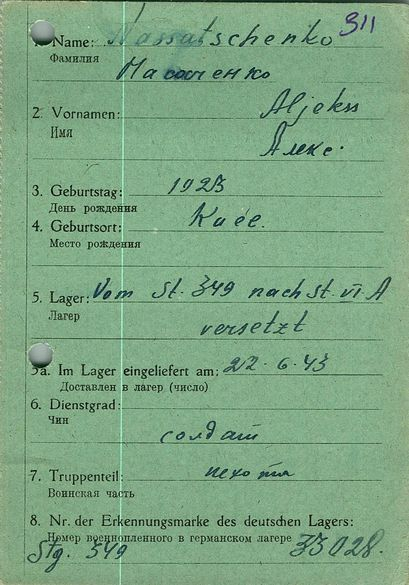 311
1. Name: Nassatschenko
Фамилия
Насоченко
2. Vornamen: Aljekss
Имя
Алекс.
3. Geburtstag: 1923
День рождения
4. Geburtsort:
Место рождения
5. Lager: Vom St. 349 nach St. VI A
Лагер
versetzt
5a. Im Lager eingeliefert am: 22.6.43
Доставлен в лагер (число)
6. Dienstgrad:
Чин
солдат
7. Truppenteil: пехота
Воинская часть
8. Nr. der Erkennungsmarke des deutschen Lagers:
Номер военнопленного в германском лагере 33028.
Stg. 349